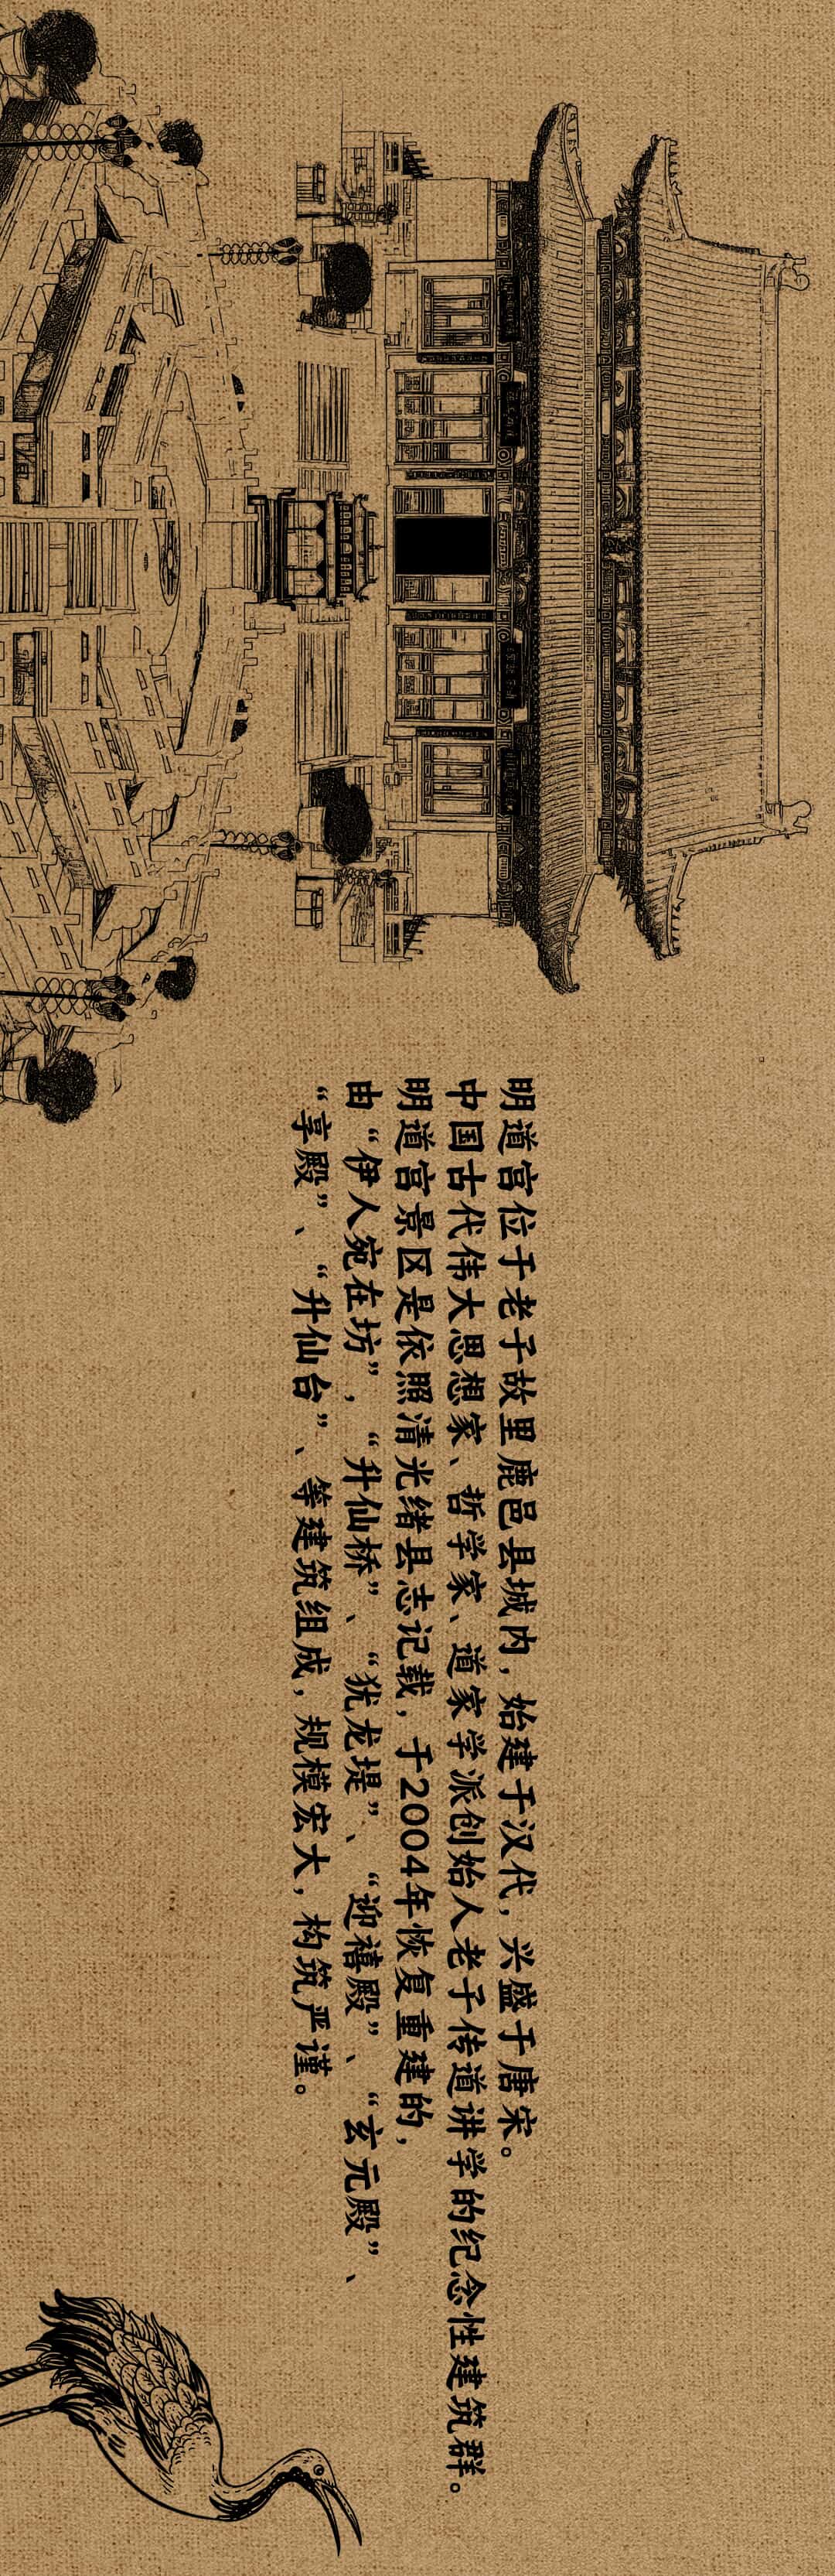 明道宫位于老子故里鹿邑县城内，始建于汉代，兴盛于唐宋。
中国古代伟大思想家、哲学家、道家学派创始人老子传道讲学的纪念性建筑群。
明道宫景区是依照清光绪县志记载，于2004年恢复重建的，
由“伊人宛在坊”，“升仙桥”、“犹龙堤”、“迎禧殿”、“玄元殿”、
“享殿”、“升仙台”、等建筑组成，规模宏大，构筑严谨。